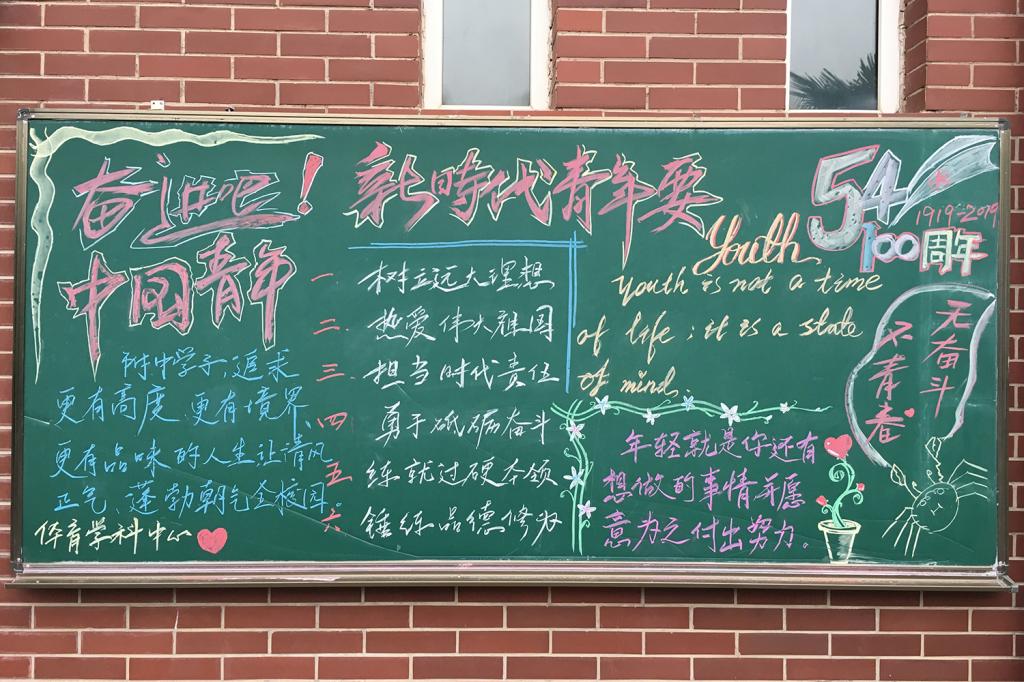 奋进吧！
中国青年
附中学子，追求
更有高度、更有境界、
更有品味的人生让清风
正气、蓬勃朝气全校园。
体育学科中心
新時代青年要
一 树立远大理想
二. 热爱伟大祖国
三. 担当时代责任
四 勇于砥砺奋斗
五 练就过硬本领
六 锤练品德修为
54
1919-2019
100周年
Youth
Youth is not a time
of life; it is a state
of mind.
年轻就是你还有
想做的事情并愿
意为之付出努力。
无奋斗
不青春